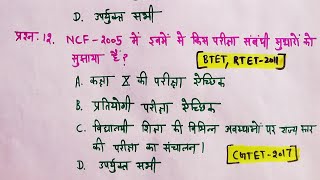 D. उपर्युक्त सभी
प्रश्न.12. NCF-2005 में इनमें से किस परीक्षा संबंधी सुधारों को
सुझाया है?
BTET, RTET-2011
A. कक्षा X की परीक्षा ऐच्छिक
B. प्रतियोगी परीक्षा ऐच्छिक
C. विद्यालयी शिक्षा की विभिन्न अवस्थाओं पर राज्य स्तर
की परीक्षा का संचालन।
CGTET-2017
D. उपर्युक्त सभी